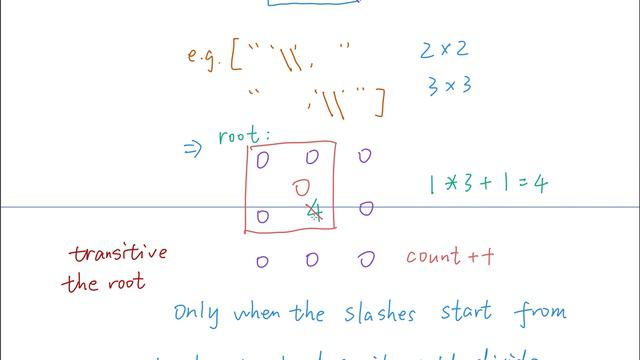 e.g. [ " \\, "
2 x 2
" , \\ " ]
3 x 3
⇒ root:
0 0 0
0
1 * 3 + 1 = 4
0 4 0
transitive
the root
0 0 0
count ++
Only when the slashes start from